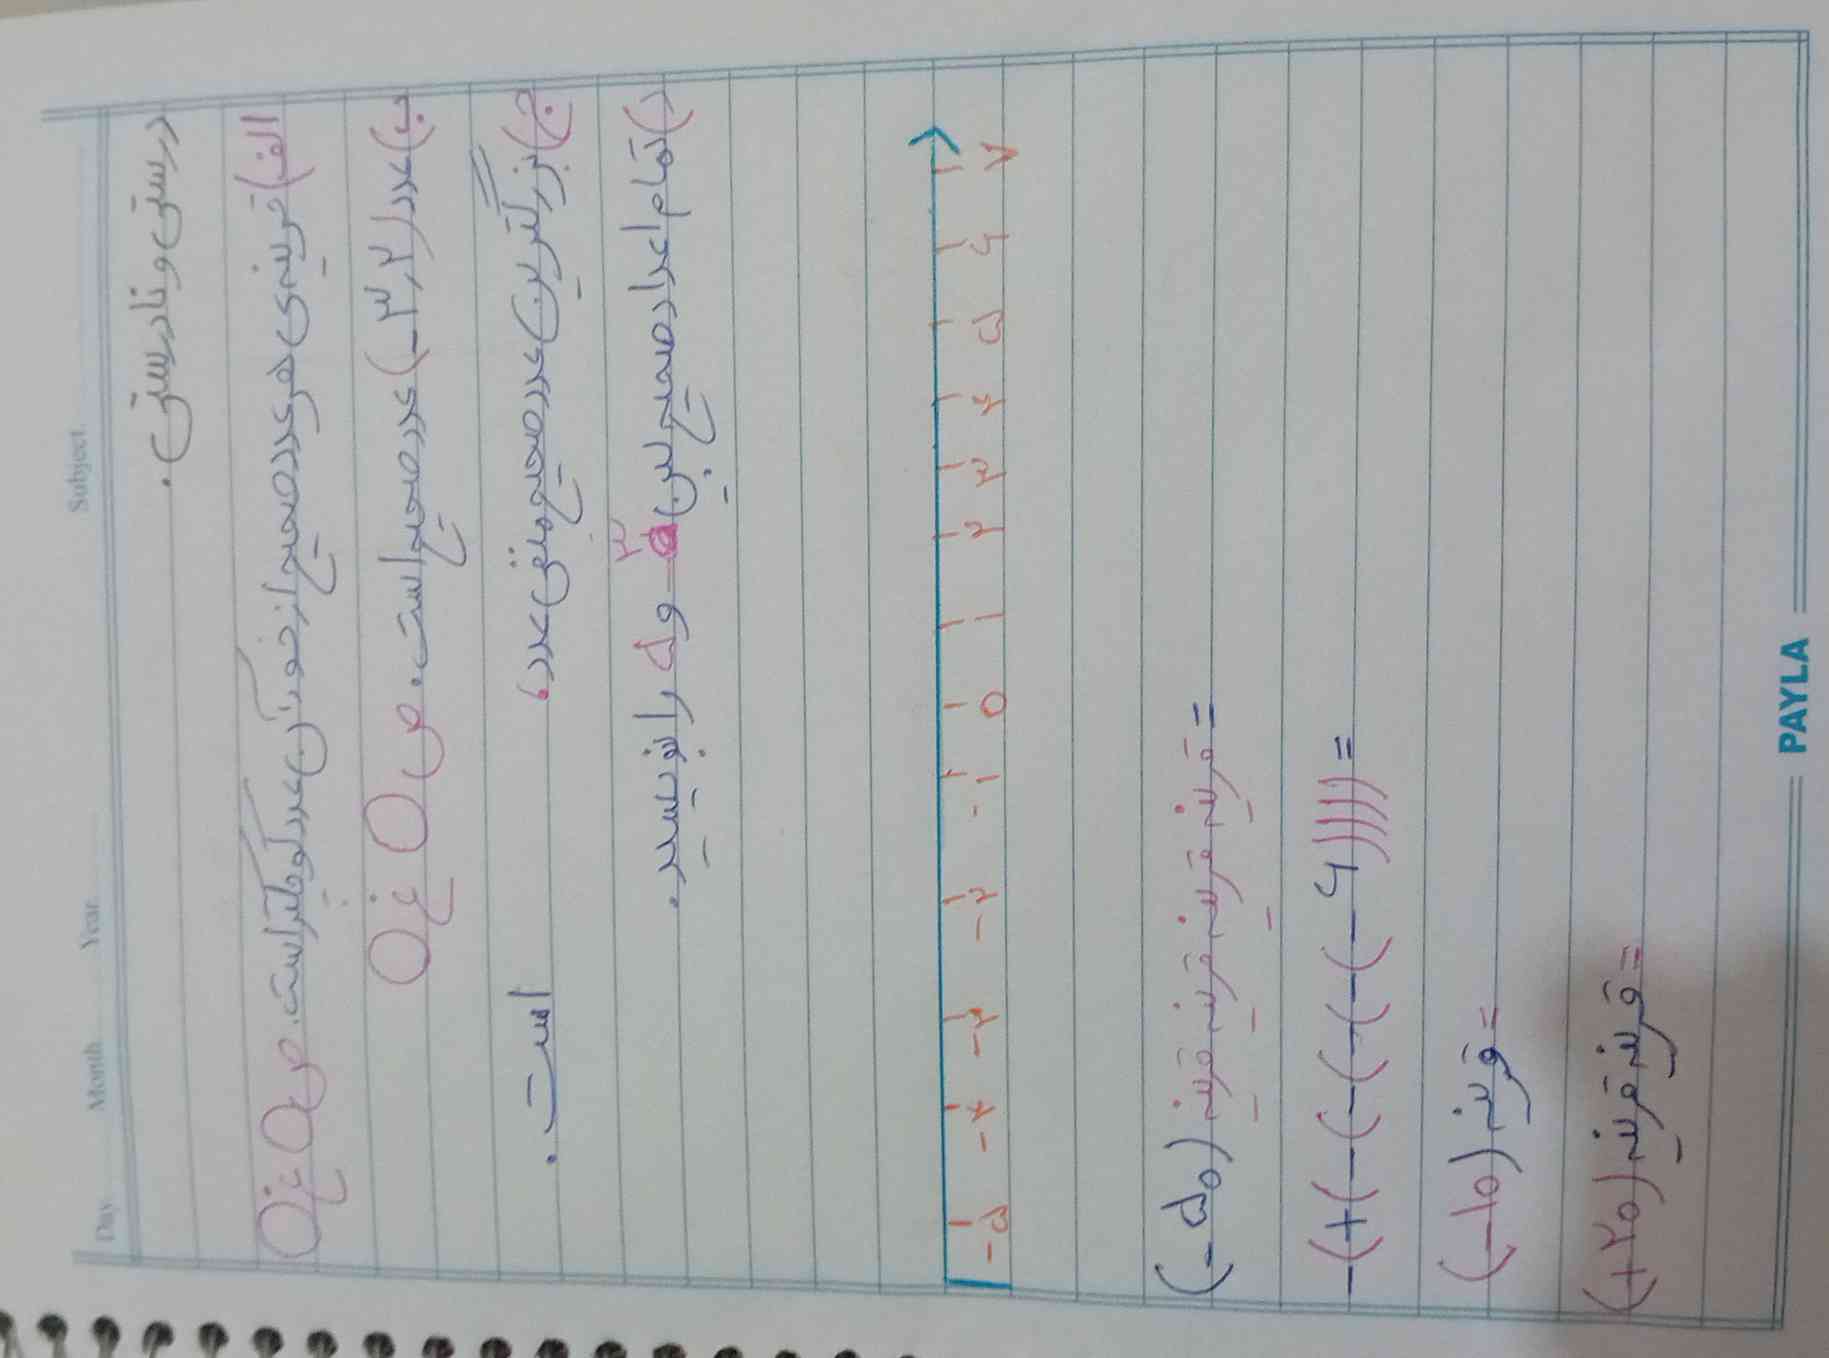 Subject: Year. Month. Day.
درستی و نادرستی.
الف) قرینه‌ی هر عدد صحیح از خود آن عدد کوچکتر است. ص○ غ○
ب) عدد (۲٫۳-) عدد صحیح است. ص○ غ○
ج) بزرگترین عدد صحیح منفی عدد، است.
د) تمام اعداد صحیح بین ۳- و ۵ را بنویسید.
-۵ -۴ -۳ -۲ -۱ ۰ ۱ ۲ ۳ ۴ ۵ ۶ ۷
(-۵۰) قرینه قرینه قرینه قرینه =
-(+(-(-(-(-۶))))) =
(-۱۰) قرینه =
(+۲۰) قرینه قرینه =
PAYLA